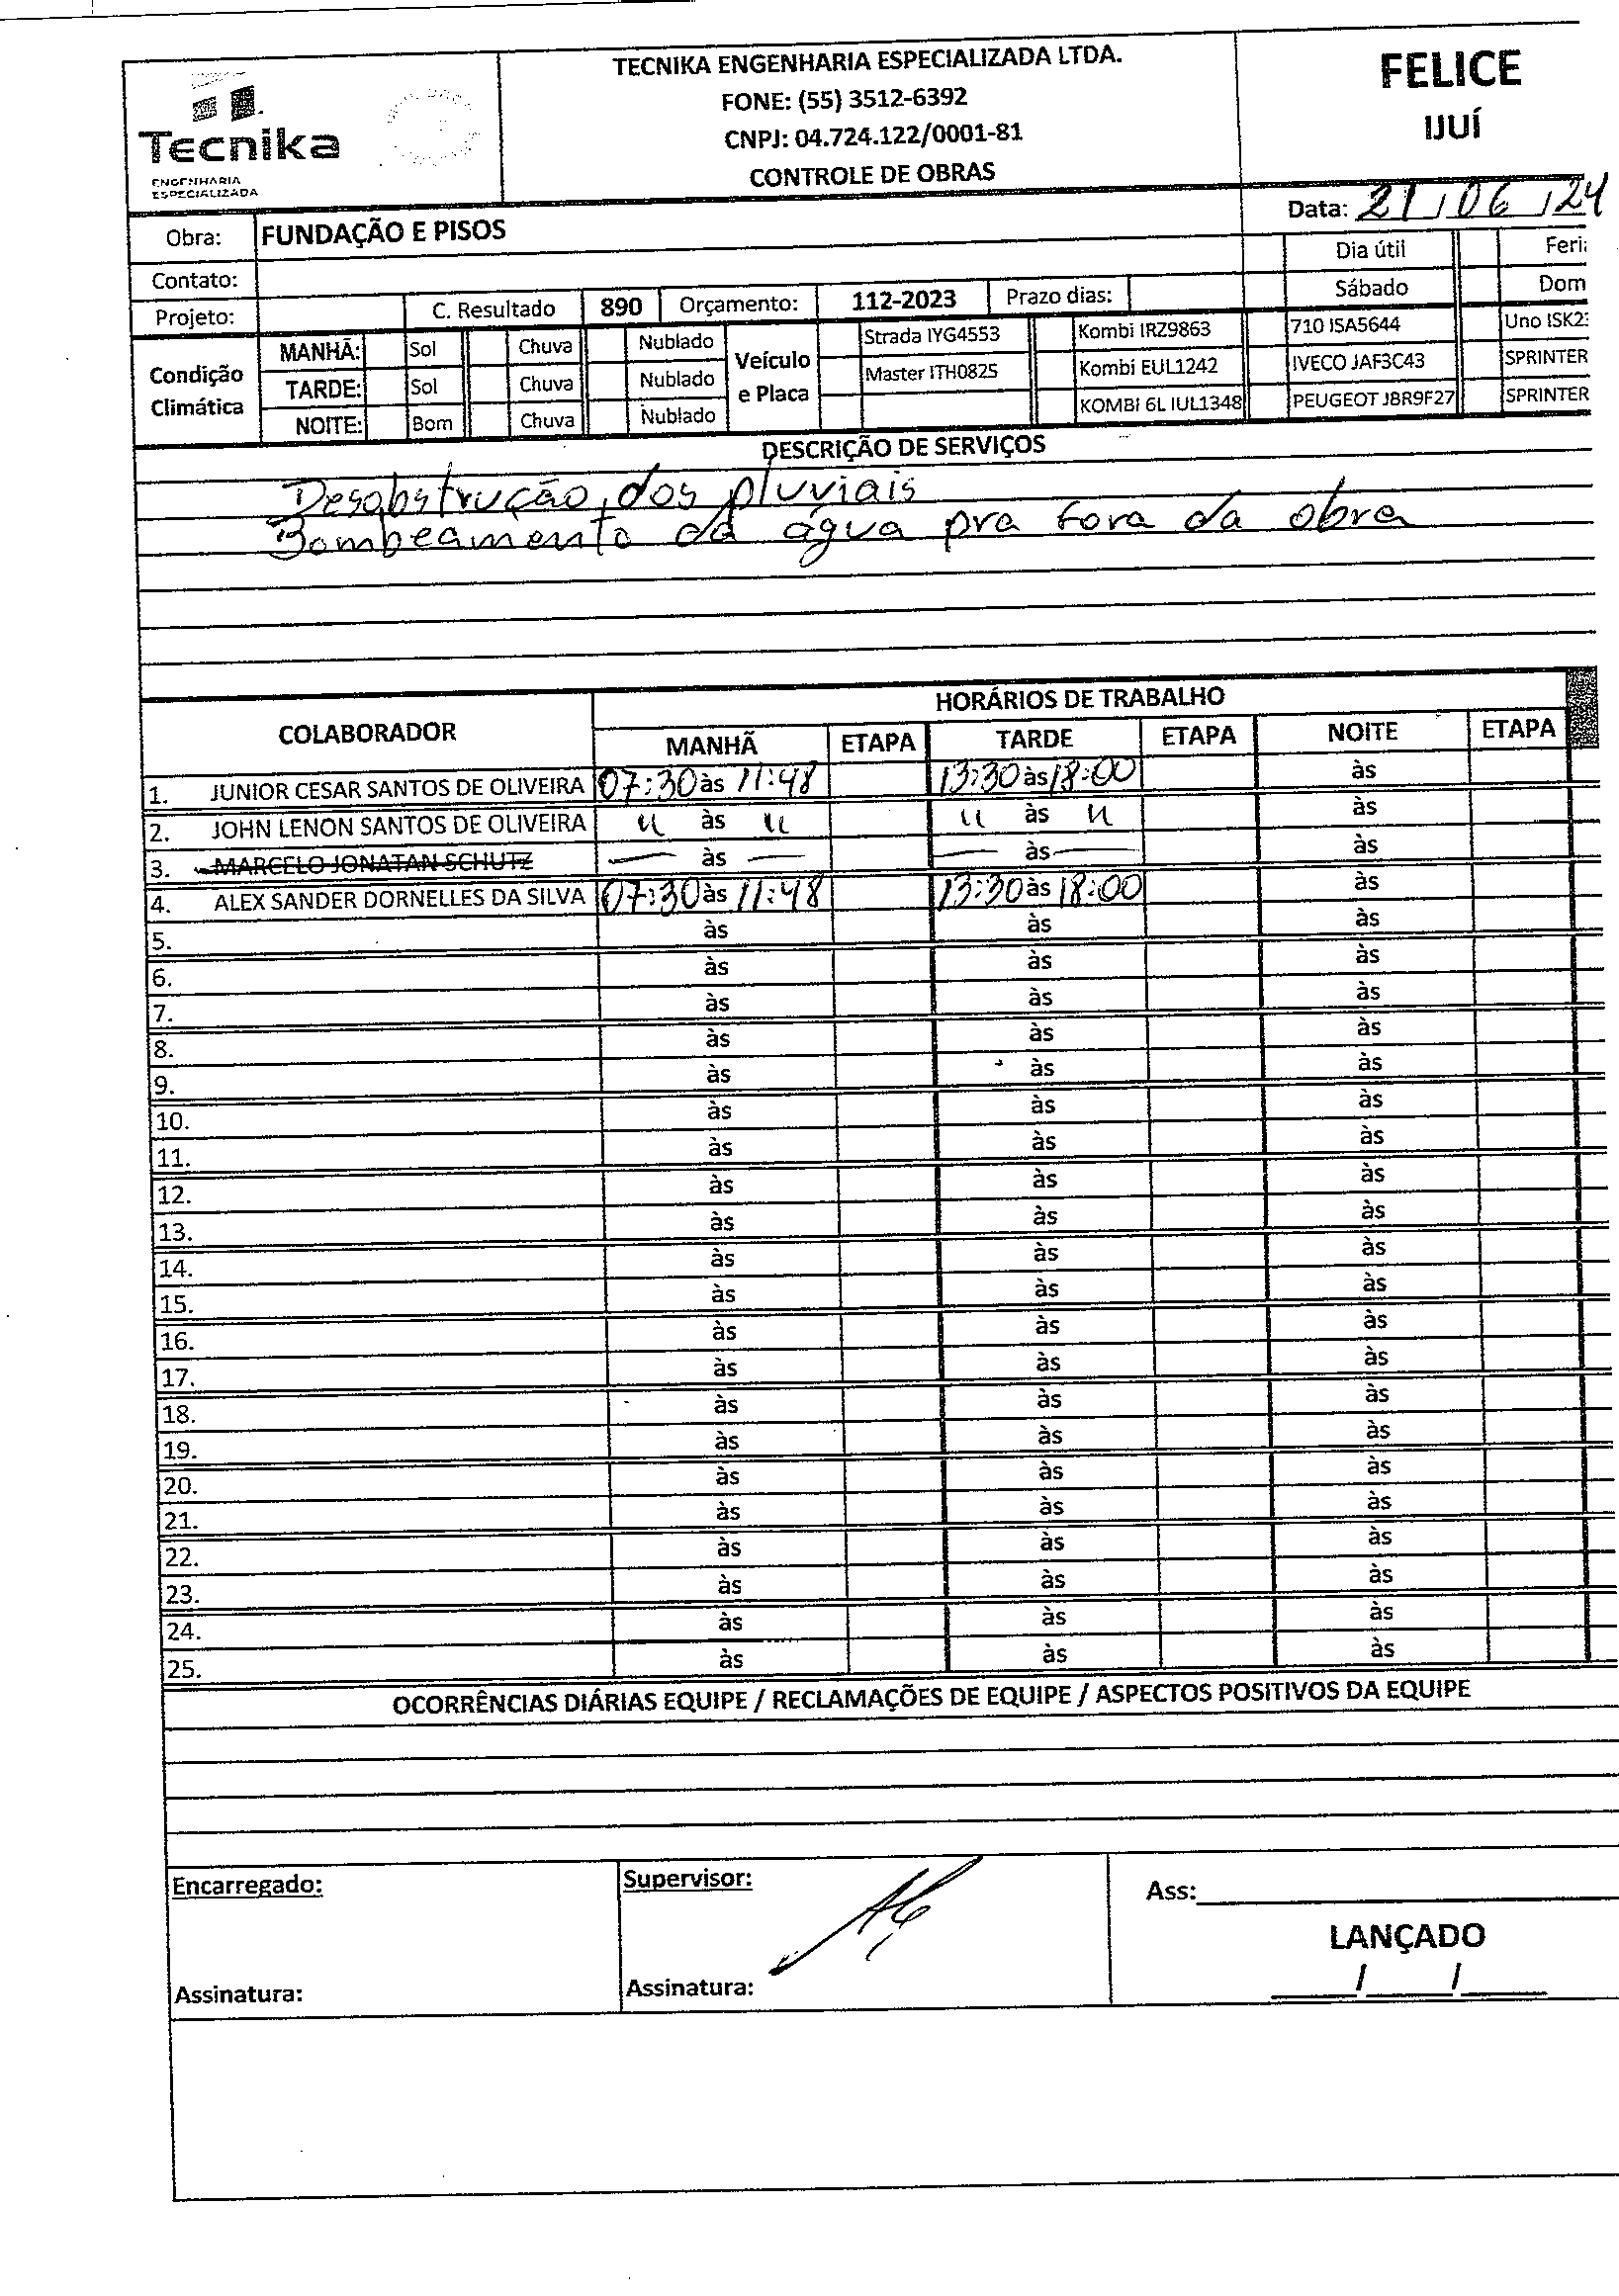 TECNIKA ENGENHARIA ESPECIALIZADA LTDA.
FONE: (55) 3512-6392
CNPJ: 04.724.122/0001-81
CONTROLE DE OBRAS
Tecnika
ENGENHARIA
ESPECIALIZADA
FELICE
IJUÍ
Data: 21/06/24
Obra: FUNDAÇÃO E PISOS
Dia útil
Contato:
Sábado Dom
Projeto: C. Resultado 890 Orçamento: 112-2023 Prazo dias:
Condição Climática
MANHÃ: Sol Chuva Nublado
TARDE: Sol Chuva Nublado
NOITE: Bom Chuva Nublado
Veículo e Placa
Strada IYG4553 Kombi IRZ9863 710 ISA5644 Uno
Master ITH0825 Kombi EUL1242 IVECO JAF3C43 SPRINTER
KOMBI 6L IUL1348 PEUGEOT JBR9F27 SPRINTER
DESCRIÇÃO DE SERVIÇOS
Desobstrução dos pluviais
Bombeamento da água pra fora da obra
COLABORADOR HORÁRIOS DE TRABALHO
MANHÃ ETAPA TARDE ETAPA NOITE ETAPA
1. JUNIOR CESAR SANTOS DE OLIVEIRA 07:30 às 11:48 13:30 às 18:00 às
2. JOHN LENON SANTOS DE OLIVEIRA " às " " às " às
3. MARCELO JONATAN SCHUTZ — às — — às — às
4. ALEX SANDER DORNELLES DA SILVA 07:30 às 11:48 13:30 às 18:00 às
5. às às às
6. às às às
7. às às às
8. às às às
9. às às às
10. às às às
11. às às às
12. às às às
13. às às às
14. às às às
15. às às às
16. às às às
17. às às às
18. às às às
19. às às às
20. às às às
21. às às às
22. às às às
23. às às às
24. às às às
25. às às às
OCORRÊNCIAS DIÁRIAS EQUIPE / RECLAMAÇÕES DE EQUIPE / ASPECTOS POSITIVOS DA EQUIPE
Encarregado: Supervisor: Ass:
LANÇADO
Assinatura: Assinatura: / /